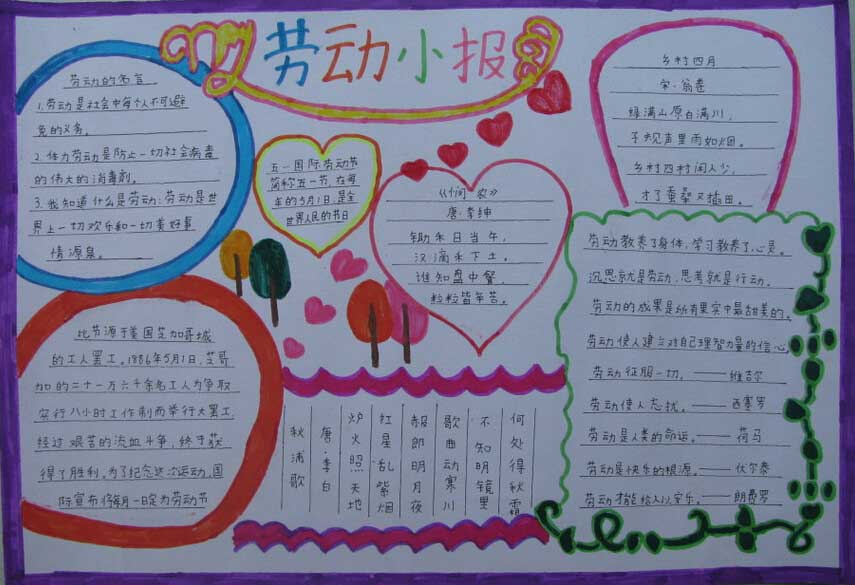 劳动小报
劳动的名言
1.劳动是社会中每个人不可避
免的义务。
2.体力劳动是防止一切社会病毒
的伟大的消毒剂。
3.我知道什么是劳动:劳动是世
界上一切欢乐和一切美好事
情源泉。
五一国际劳动节
简称五一节,在每
年的5月1日,是全
世界人民的节日
《悯农》
唐·李绅
锄禾日当午,
汗滴禾下土。
谁知盘中餐,
粒粒皆辛苦。
乡村四月
宋·翁卷
绿满山原白满川,
子规声里雨如烟。
乡村四村闲人少,
才了蚕桑又插田。
比节源于美国芝加哥城
的工人罢工。1886年5月1日,芝哥
加的二十一万六千余名工人为争取
实行八小时工作制而举行大罢工,
经过艰苦的流血斗争,终于获
得了胜利。为了纪念这次运动,国
际宣布将每月一日定为劳动节
秋浦歌
唐·李白
炉火照天地
红星乱紫烟
赧郎明月夜
歌曲动寒川
不知明镜里
何处得秋霜
劳动教养了身体,学习教养了心灵。
沉思就是劳动,思考就是行动。
劳动的成果是所有果实中最甜美的。
劳动使人建立对自己理智力量的信心
劳动征服一切。——维吉尔
劳动使人忘忧。——西塞罗
劳动是人类的命运。——荷马
劳动是快乐的根源。——伏尔泰
劳动才能给人以安乐。——朗费罗